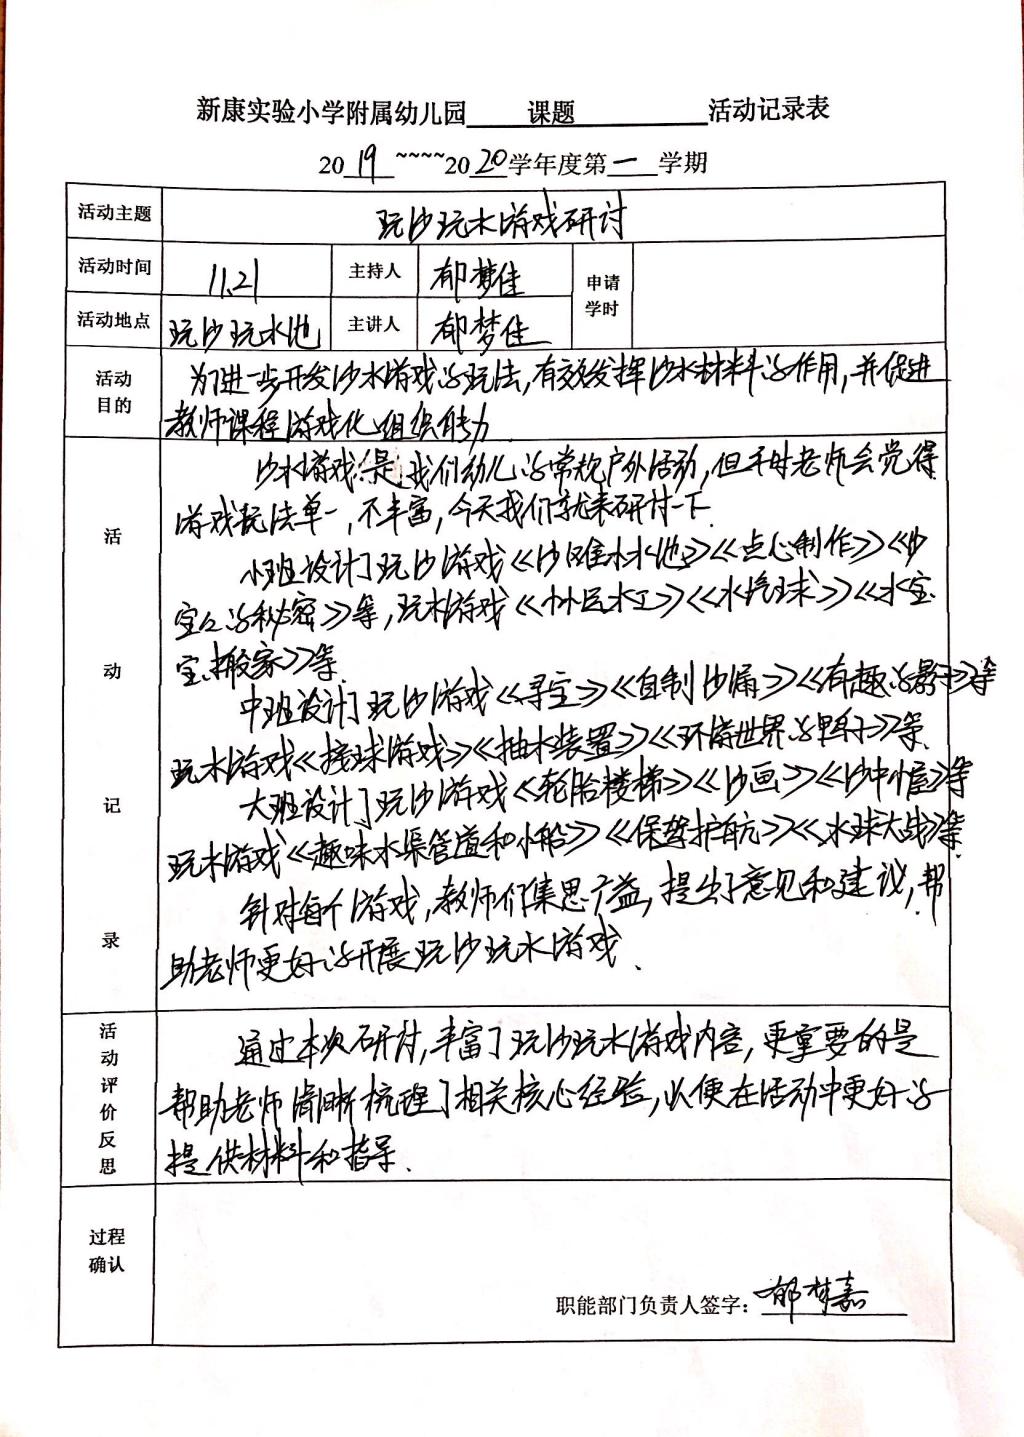 新康实验小学附属幼儿园 课题 活动记录表
2019 ~~~~2020学年度第一学期
活动主题 玩沙玩水游戏研讨
活动时间 11.21 主持人 郁梦佳 申请学时
活动地点 玩沙玩水池 主讲人 郁梦佳
活动目的 为了进一步开发沙水游戏的玩法,有效发挥沙水材料的作用,并促进
教师课程游戏化组织能力
活动记录
沙水游戏是我们幼儿的常规户外活动,但平时老师会觉得
游戏玩法单一,不丰富,今天我们就来研讨一下.
小班设计了玩沙游戏《沙堆小水池》《点心制作》《沙
宝宝的秘密》等,玩水游戏《小小运水工》《水汽球》《水宝
宝搬家》等.
中班设计了玩沙游戏《寻宝》《自制沙漏》《有趣的影子》等
玩水游戏《接球游戏》《抽水装置》《环游世界的鸭子》等.
大班设计了玩沙游戏《轮胎楼梯》《沙画》《沙中小屋》等
玩水游戏《趣味水渠管道和小船》《保驾护航》《水球大战》等.
针对每个游戏,教师们集思广益,提出了意见和建议,帮
助老师更好的开展玩沙玩水游戏.
活动评价反思
通过本次研讨,丰富了玩沙玩水游戏内容,更重要的是
帮助老师清晰梳理了相关核心经验,以便在活动中更好的
提供材料和指导.
过程确认
职能部门负责人签字: 郁梦嘉